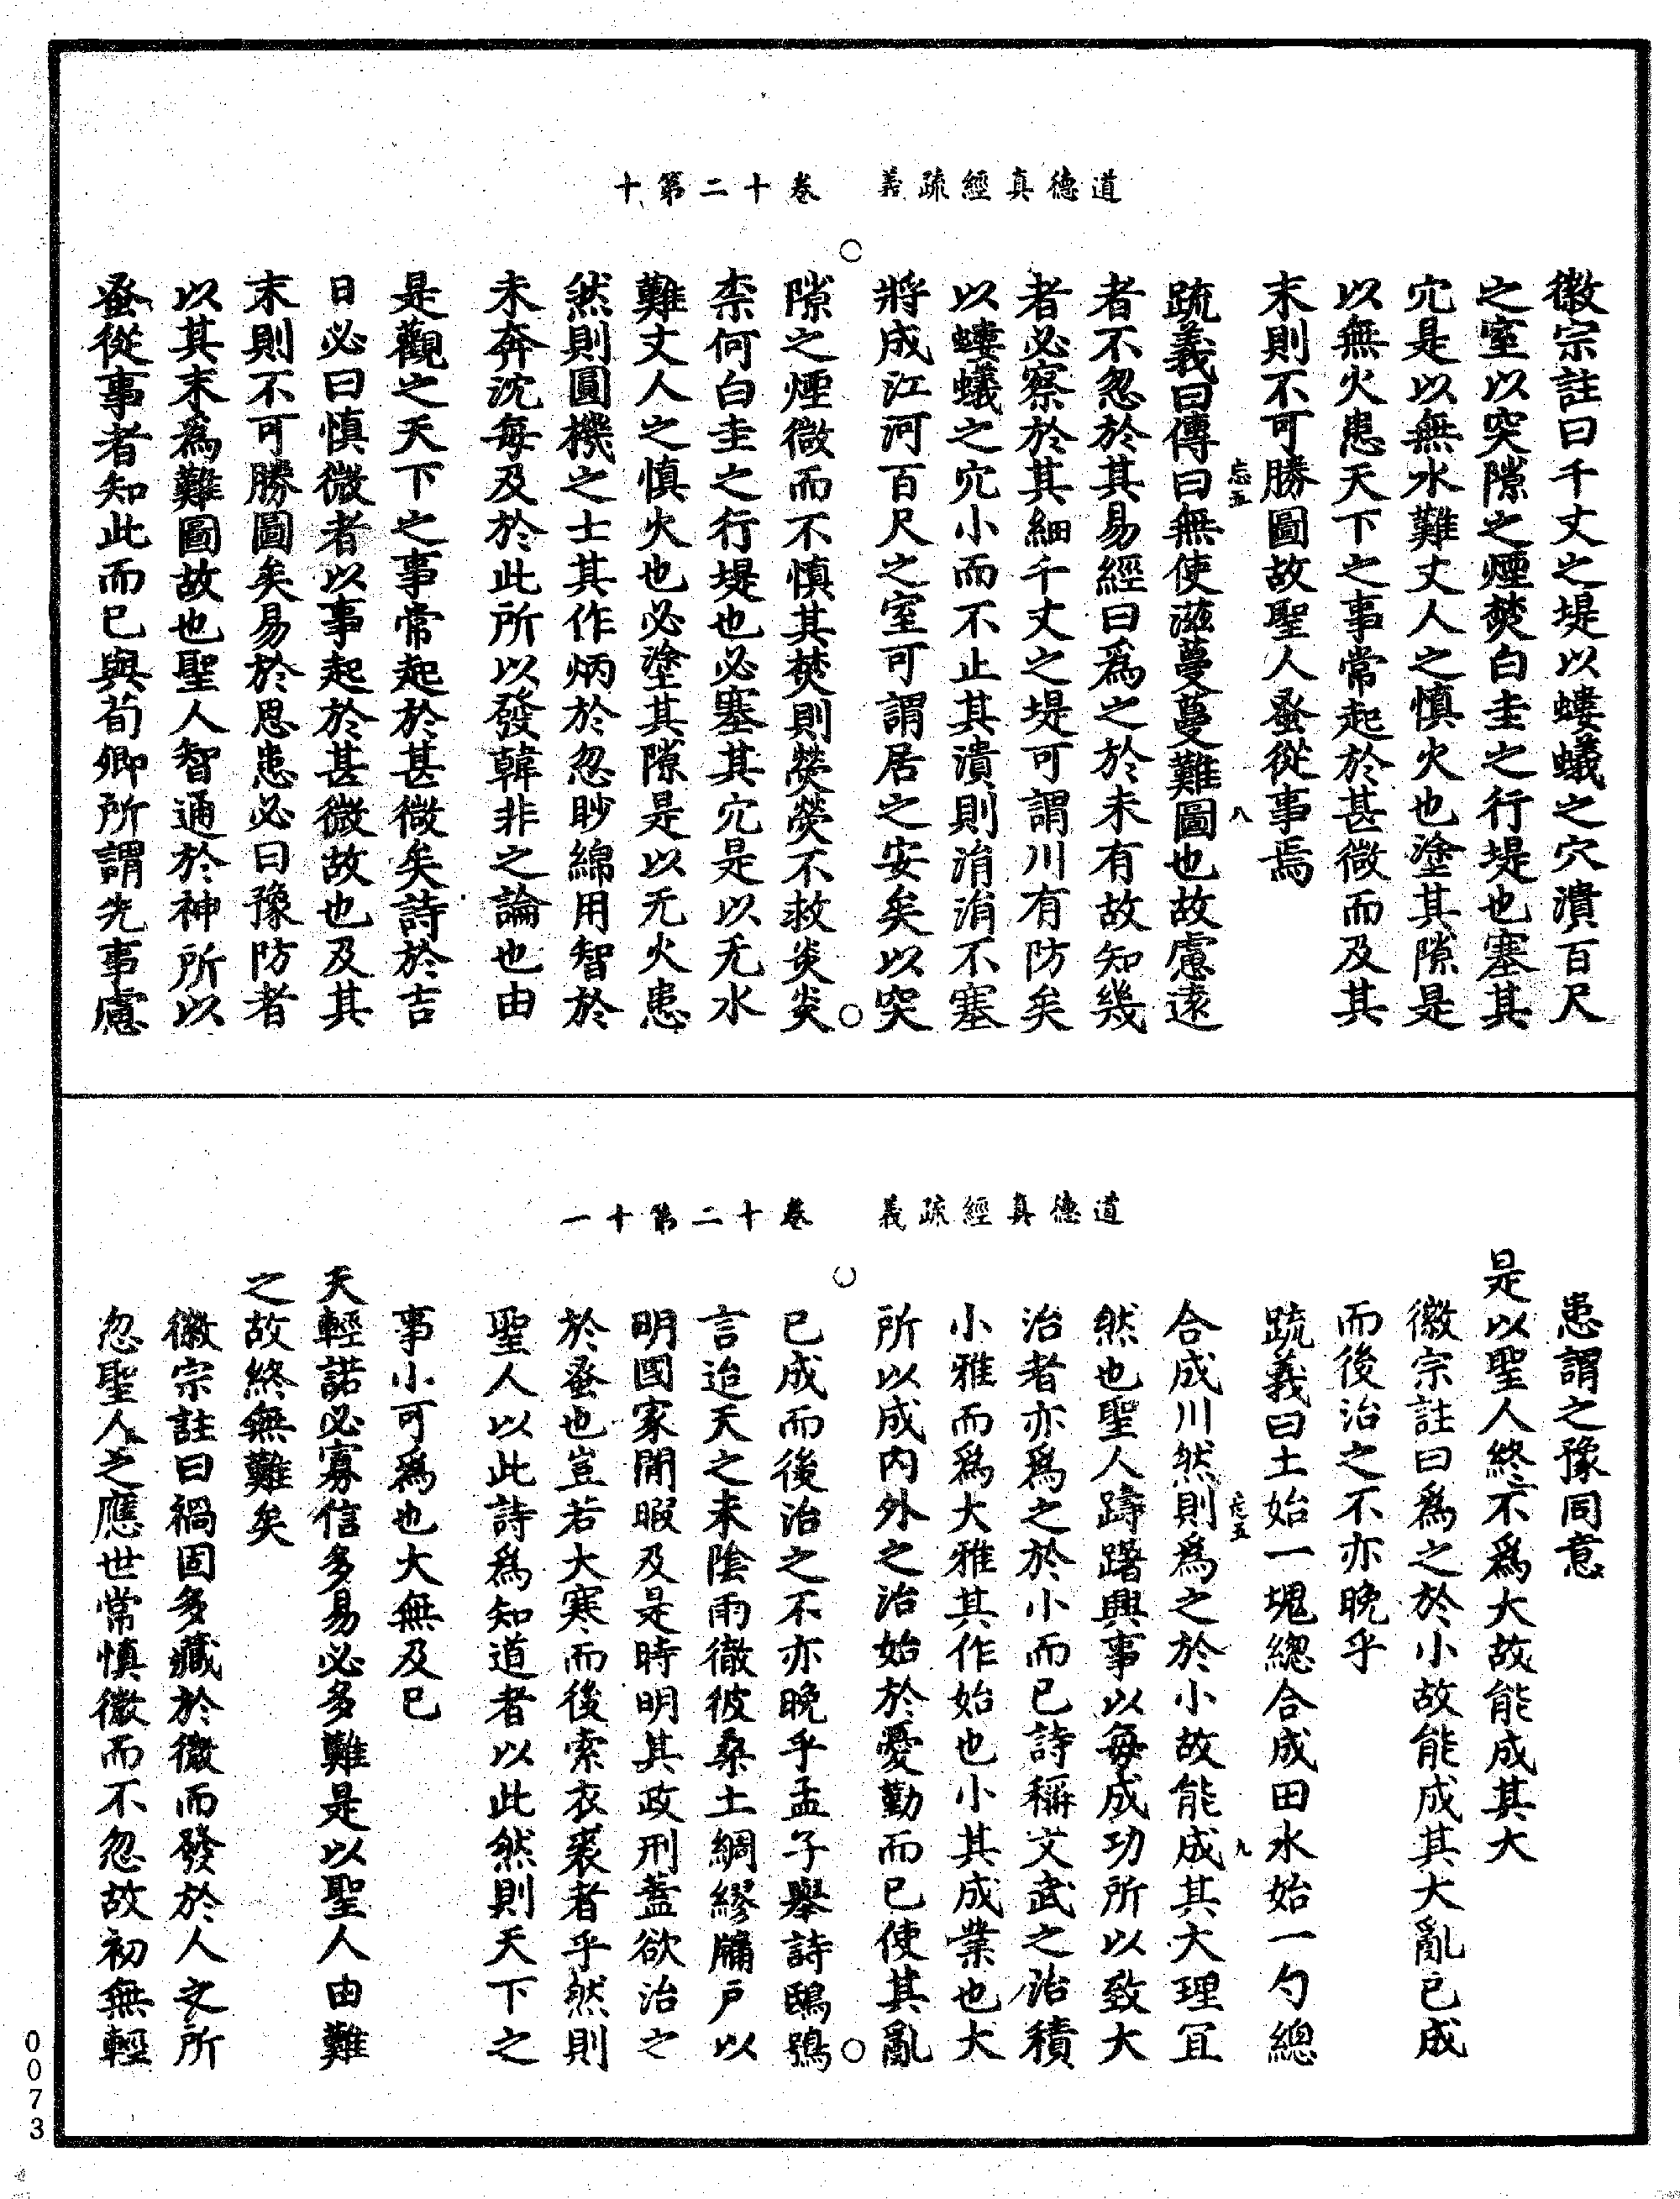 道德真經疏義　卷十二第十
徽宗註曰千丈之堤以螻蟻之穴潰百尺
之室以突隙之煙焚白圭之行堤也塞其
穴是以無水難丈人之慎火也塗其隙是
以無火患天下之事常起於甚微而及其
末則不可勝圖故聖人蚤從事焉
忘五　八
疏義曰傳曰無使滋蔓蔓難圖也故慮遠
者不忽於其易經曰為之於未有故知幾
者必察於其細千丈之堤可謂川有防矣
以螻蟻之穴小而不止其潰則涓涓不塞
將成江河百尺之室可謂居之安矣以突
隙之煙微而不慎其焚則熒熒不救炎炎
柰何白圭之行堤也必塞其穴是以无水
難丈人之慎火也必塗其隙是以无火患
然則圓機之士其作炳於忽眇綿用智於
未奔沈每及於此所以發韓非之論也由
是觀之天下之事常起於甚微矣詩於吉
日必曰慎微者以事起於甚微故也及其
末則不可勝圖矣易於思患必曰豫防者
以其末為難圖故也聖人智通於神所以
蚤從事者知此而已與荀卿所謂先事慮
道德真經疏義　卷十二第十一
患謂之豫同意
是以聖人終不為大故能成其大
徽宗註曰為之於小故能成其大亂已成
而後治之不亦晚乎
疏義曰土始一塊總合成田水始一勺總
忘五　九
合成川然則為之於小故能成其大理冝
然也聖人躊躇興事以每成功所以致大
治者亦為之於小而已詩稱文武之治積
小雅而為大雅其作始也小其成業也大
所以成內外之治始於憂勤而已使其亂
已成而後治之不亦晚乎孟子舉詩鴟鴞
言迨天之未陰雨徹彼桑土綢繆牖戶以
明國家閒暇及是時明其政刑蓋欲治之
於蚤也豈若大寒而後索衣裘者乎然則
聖人以此詩為知道者以此然則天下之
事小可為也大無及已
天輕諾必寡信多易必多難是以聖人由難
之故終無難矣
徽宗註曰禍固多藏於微而發於人之所
忽聖人之應世常慎微而不忽故初無輕
0073